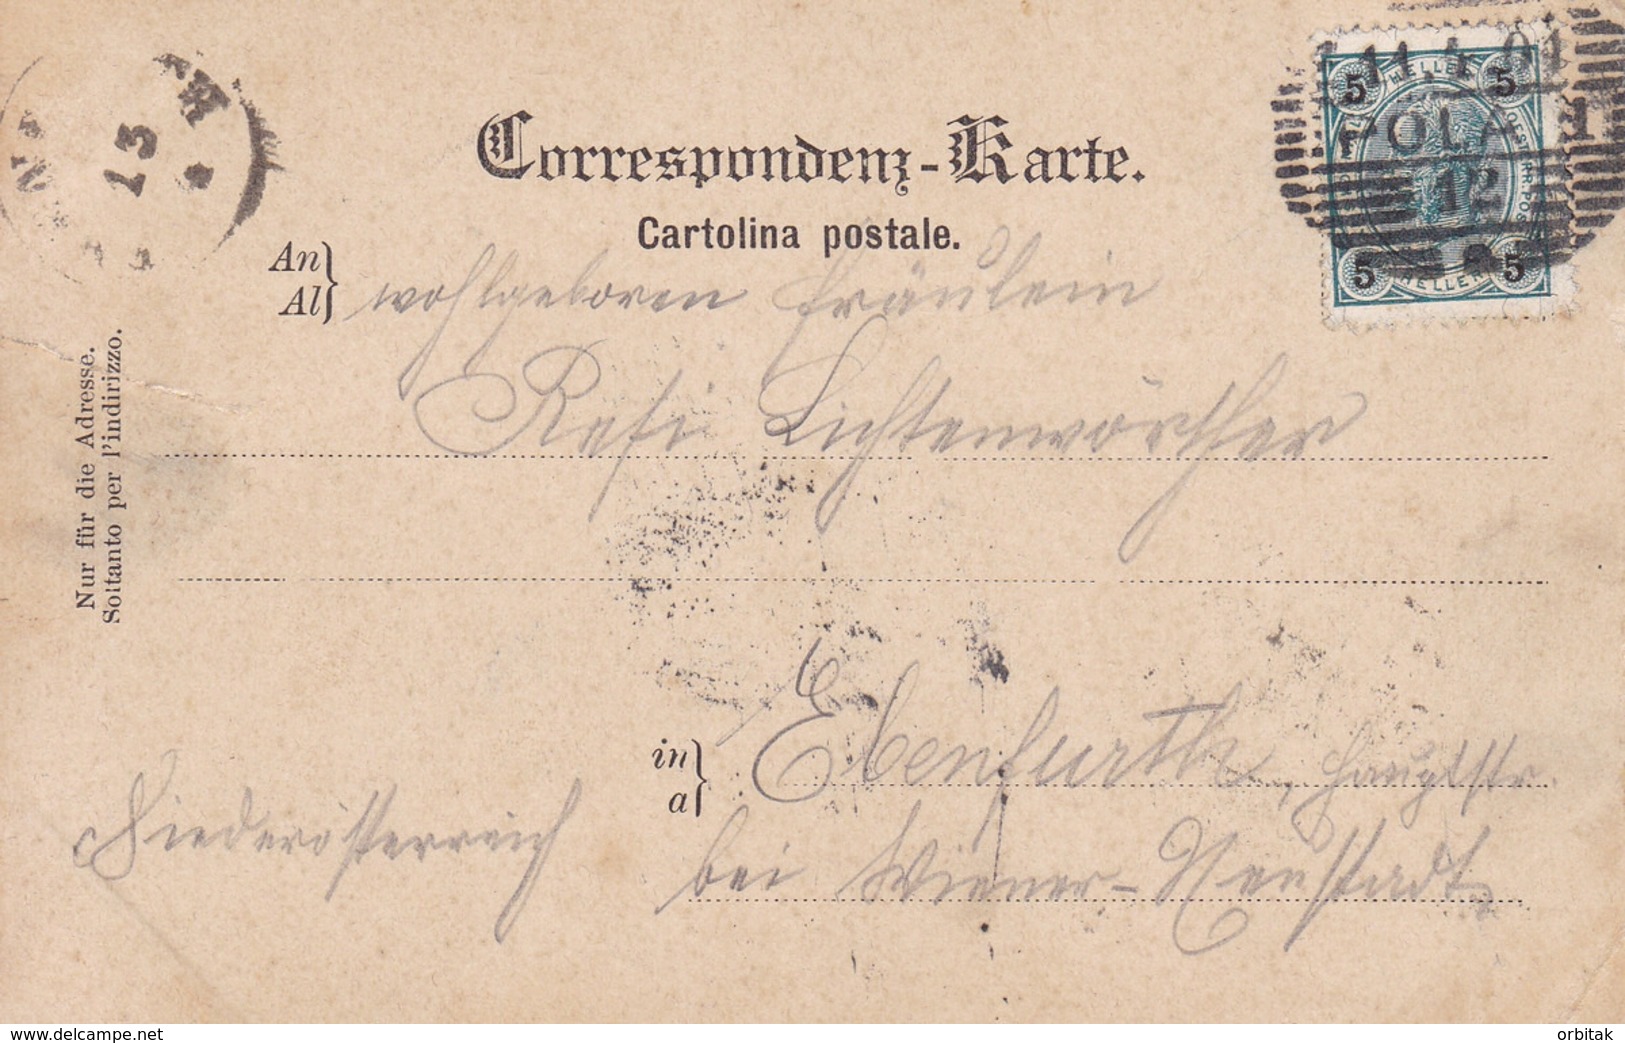 Correspondenz-Karte.
Cartolina postale.
11.1.04
POLA 1
12
5 HELLER 5
5 HELLER 5
An
Al
wohlgeboren Fräulein
Resi Lichtenwörther
Nur für die Adresse.
Soltanto per l'indirizzo.
in
a
Ebenfurth, Hauptstr.
bei Wiener-Neustadt
Niederösterreich
delcampe.net
orbitak